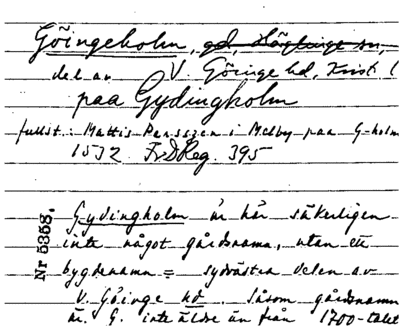 Göingeholm, gd, Häglinge sn,
del av V. Göinge hd, Krist. l
paa Gydingholm
fullst.: Mattis Persszen i Melby paa G-holm
1532 FrDReg. 395
Gydingholm är här säkerligen
inte något gårdsnamn, utan ett
bygdenamn = sydvästra delen av
V. Göinge hd. Såsom gårdsnamn
är G. inte äldre än från 1700-talet
Nr 5358.